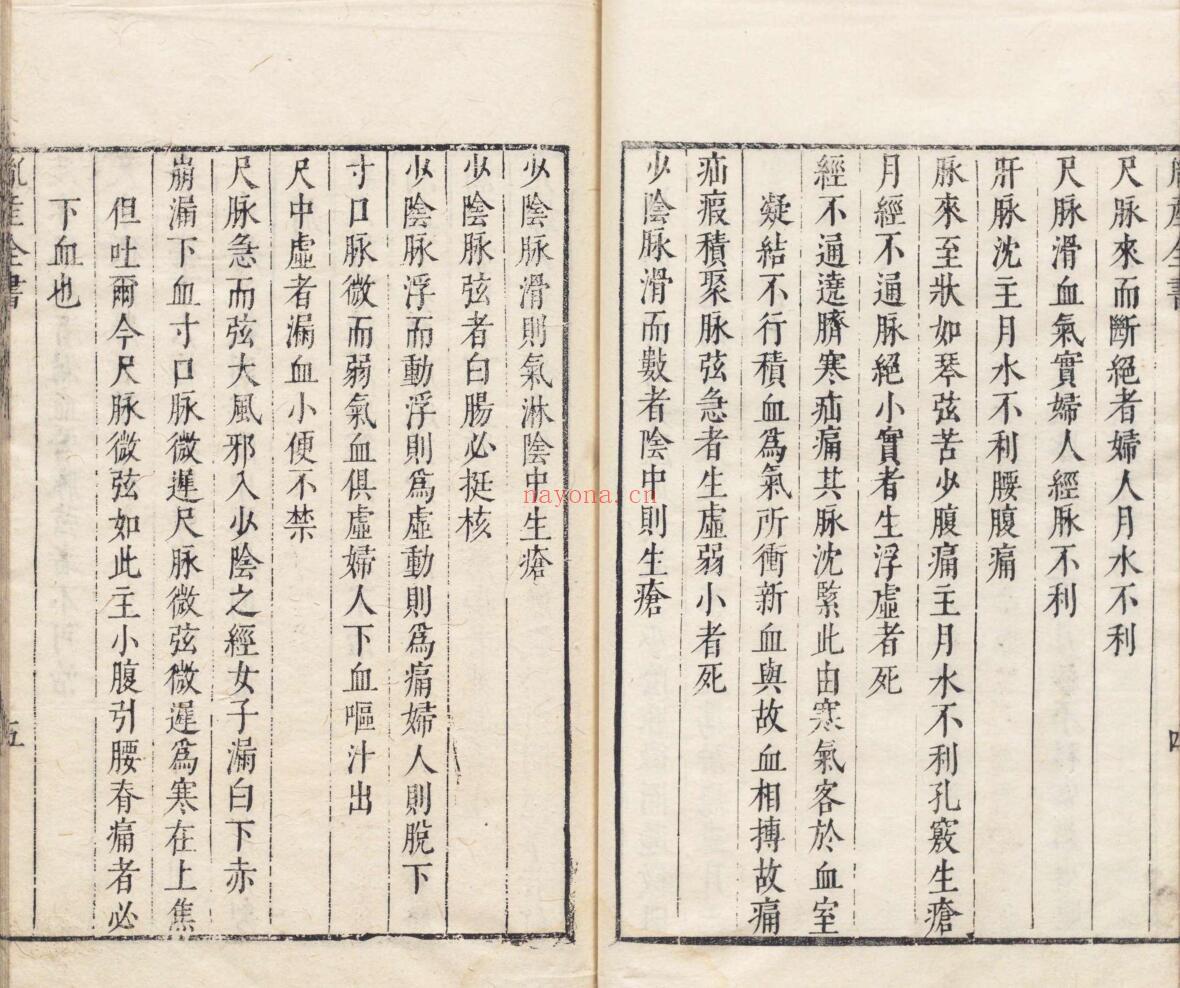 尺脉來而斷絕者婦人月水不利
尺脉滑血氣實婦人經脉不利
肝脉沈主月水不利腰腹痛
脉來至狀如琴弦苦少腹痛主月水不利孔竅生瘡
月經不通脉絕小實者生浮虛者死
經不通遶臍寒疝痛其脉沈緊此由寒氣客於血室
凝結不行積血爲氣所衝新血與故血相摶故痛
疝瘕積聚脉弦急者生虛弱小者死
少陰脉滑而數者陰中則生瘡
少陰脉滑則氣淋陰中生瘡
少陰脉弦者白腸必挺核
少陰脉浮而動浮則爲虛動則爲痛婦人則脫下
寸口脉微而弱氣血俱虛婦人下血嘔汁出
尺中虛者漏血小便不禁
尺脉急而弦大風邪入少陰之經女子漏白下赤
崩漏下血寸口脉微遲尺脉微弦微遲爲寒在上焦
但吐爾今尺脉微弦如此主小腹引腰脊痛者必
下血也
胤產全書
五
nayona.cn